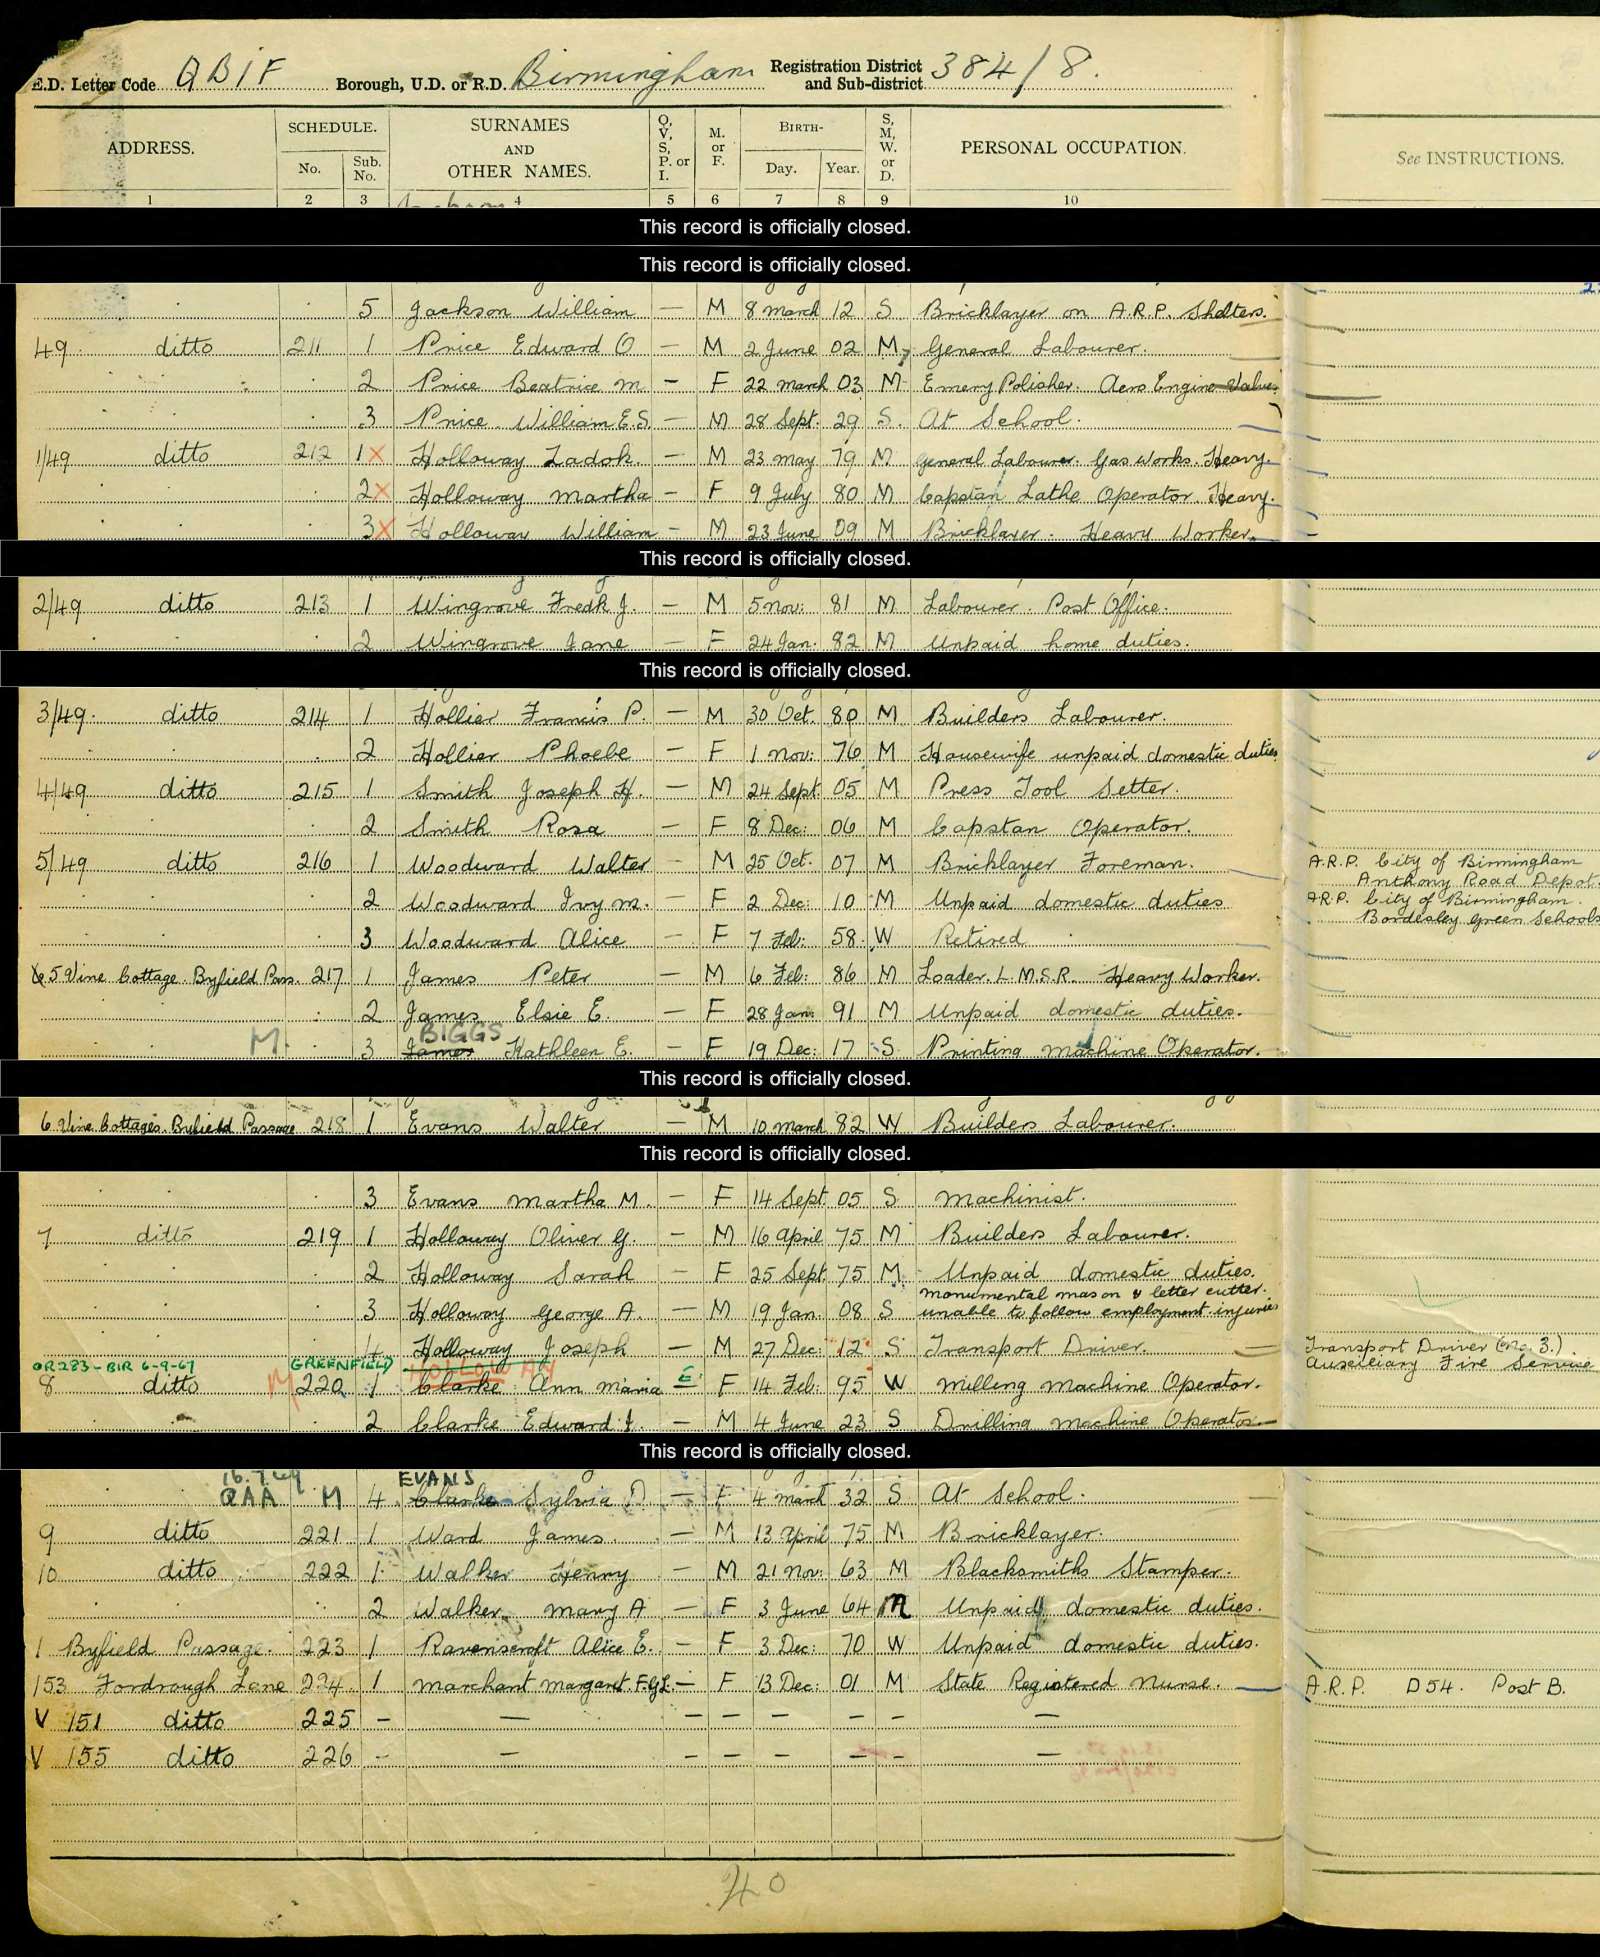 E.D. Letter Code QBIF Borough, U.D. or R.D. Birmingham Registration District and Sub-district 384/8.
ADDRESS. SCHEDULE. No. Sub. No. SURNAMES AND OTHER NAMES. O, V, S, P. or I. M. or F. BIRTH- Day. Year. S, M, W. or D. PERSONAL OCCUPATION. See INSTRUCTIONS.
1 2 3 4 5 6 7 8 9 10
This record is officially closed.
This record is officially closed.
5 Jackson William — M 8 March 12 S Bricklayer on A.R.P. Shelters.
49. ditto 211 1 Price Edward O — M 2 June 02 M General Labourer.
2 Price Beatrice M. — F 22 March 03 M Emery Polisher. Aero Engine Valves
3 Price William E.S. — M 28 Sept. 29 S. At School.
1/49 ditto 212 1 X Holloway Zadok. — M 23 May 79 M General Labourer. Gas Works. Heavy.
2 X Holloway Martha — F 9 July 80 M Capstan Lathe Operator. Heavy.
3 X Holloway William — M 23 June 09 M Bricklayer. Heavy Worker.
This record is officially closed.
2/49 ditto 213 1 Wingrove Fredk J. — M 5 Nov: 81 M Labourer. Post Office.
2 Wingrove Jane — F 24 Jan. 82 M Unpaid home duties.
This record is officially closed.
3/49. ditto 214 1 Hollier Francis P. — M 30 Oct. 80 M Builders Labourer.
2 Hollier Phoebe — F 1 Nov: 76 M Housewife unpaid domestic duties
4/49 ditto 215 1 Smith Joseph H. — M 24 Sept 05 M Press Tool Setter.
2 Smith Rosa — F 8 Dec: 06 M Capstan Operator.
5/49 ditto 216 1 Woodward Walter — M 25 Oct. 07 M Bricklayer Foreman. A.R.P. City of Birmingham
Anthony Road Depot.
2 Woodward Ivy M. — F 2 Dec: 10 M Unpaid domestic duties A.R.P. City of Birmingham.
Bordesley Green Schools
3 Woodward Alice — F 7 Feb: 58 W Retired
5 Vine Cottage. Byfield Pass. 217 1 James Peter — M 6 Feb: 86 M Loader. L.M.S.R. Heavy Worker.
2 James Elsie E. — F 28 Jan: 91 M Unpaid domestic duties.
BIGGS
M. 3 James Kathleen E. — F 19 Dec: 17 S Printing machine Operator.
This record is officially closed.
6 Vine Cottages. Byfield Passage 218 1 Evans Walter — M 10 March 82 W Builders Labourer.
This record is officially closed.
3 Evans Martha M. — F 14 Sept. 05 S Machinist.
7 ditto 219 1 Holloway Oliver G. — M 16 April 75 M Builders Labourer.
2 Holloway Sarah — F 25 Sept. 75 M Unpaid domestic duties.
monumental mason & letter cutter.
3 Holloway George A. — M 19 Jan. 08 S unable to follow employment. injuries
4 Holloway Joseph — M 27 Dec: 12 S Transport Driver. Transport Driver (No. 3.)
OR283-BIR 6-9-67 GREENFIELD HOLLOWAY Auxeiliary Fire Service
8. ditto M 220 1 Clarke Ann Maria — E F 14 Feb: 95 W Milling machine Operator.
2 Clarke Edward J. — M 4 June 23 S Drilling machine Operator
This record is officially closed.
16.7.49 EVANS
QAA M 4 Clarke Sylvia D — F 4 March 32 S At School.
9 ditto 221 1 Ward James. — M 13 April 75 M Bricklayer.
10 ditto 222 1 Walker Henry — M 21 Nov: 63 M Blacksmiths Stamper.
2 Walker Mary A — F 3 June 64 M Unpaid domestic duties.
1 Byfield Passage. 223 1 Ravenscroft Alice E. — F 3 Dec: 70 W Unpaid domestic duties.
153 Fordrough Lane 224 1 Marchant Margaret F.G.L. — F 13 Dec: 01 M State Registered Nurse. A.R.P. D54. Post B.
V 151 ditto 225 — — — — — — — —
V 155 ditto 226 — — — — — — — —
40